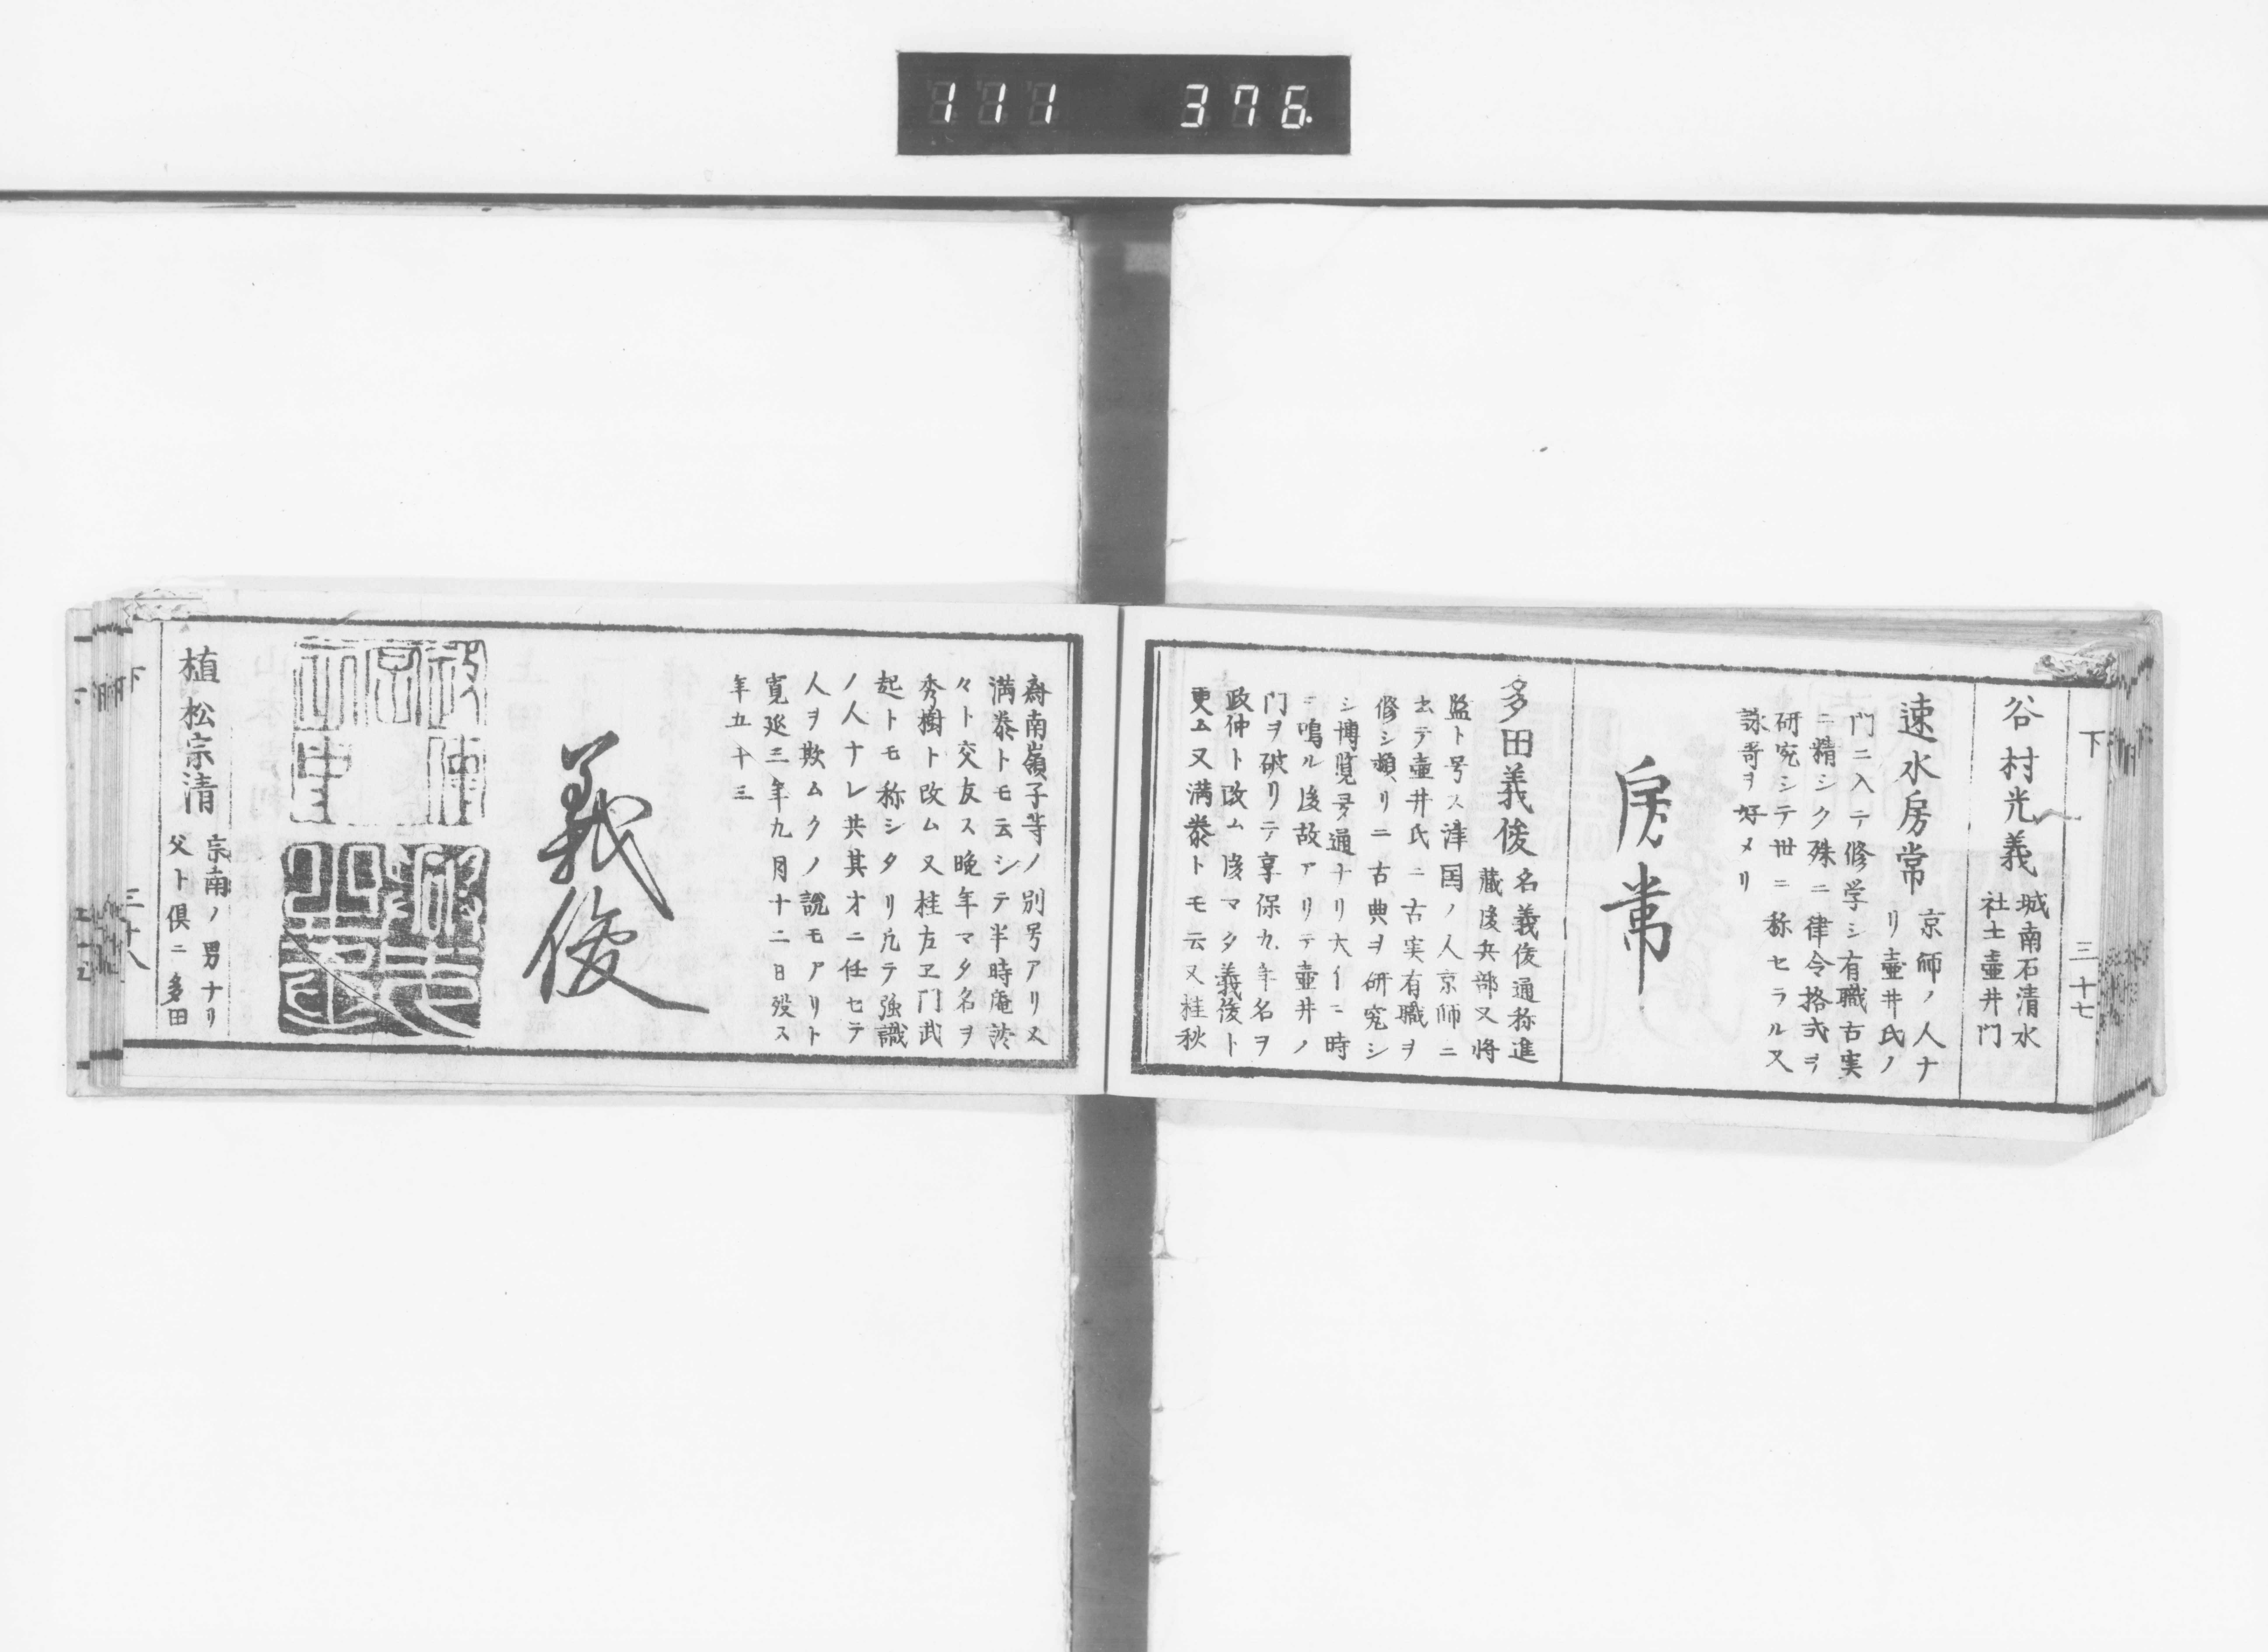 111 376
下 三十七
谷村光義
城南石清水
社士壷井門
速水房常
京師ノ人ナ
リ壷井氏ノ
門ニ入テ修学シ有職古実
ニ精シク殊ニ律令格式ヲ
研究シテ世ニ称セラル又
詠哥ヲ好メリ
房常
多田義俊
名義俊通称進
蔵後兵部又将
監ト号ス津国ノ人京師ニ
出テ壷井氏ニ古実有職ヲ
修シ頻リニ古典ヲ研究シ
シ博覧多通ナリ大イニ時
ニ鳴ル後故アリテ壷井ノ
門ヲ破リテ享保九年名ヲ
政仲ト改ム後マタ義俊ト
更ム又満泰トモ云又桂秋
斎南嶺子等ノ別号アリ又
満泰トモ云シテ半時庵淡
々ト交友ス晩年マタ名ヲ
秀樹ト改ム又桂左ヱ門武
起トモ称シタリ凡テ強識
ノ人ナレ共其才ニ任セテ
人ヲ欺ムクノ説モアリト
寛延三年九月十二日歿ス
年五十三
義俊
植松宗清
宗南ノ男ナリ
父ト倶ニ多田
下 三十八